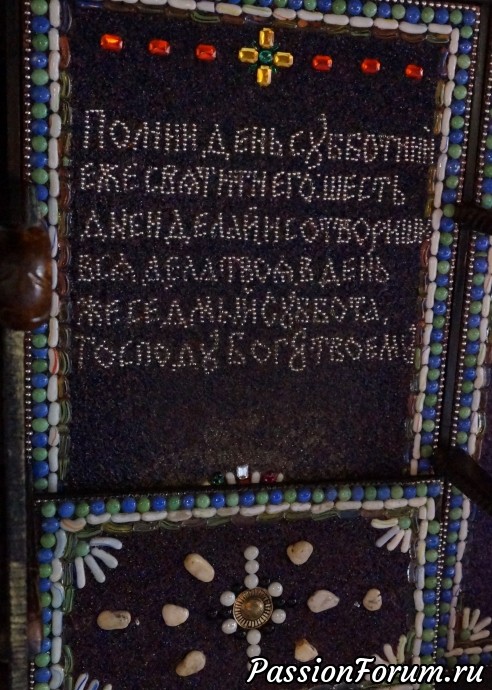 ПОМНИ ДЕНЬ СꙊББОТНИЙ
ЕЖЕ СВѦТИТИ ЕГО ШЕСТЬ
ДНЕЙ ДЕЛАЙ И СОТВОРИШИ
ВСѦ ДЕЛА ТВОѦ В ДЕНЬ
ЖЕ СЕДМЫЙ СꙊББОТА,
ГОСПОДꙊ БОГꙊ ТВОЕМꙊ
PassionForum.ru